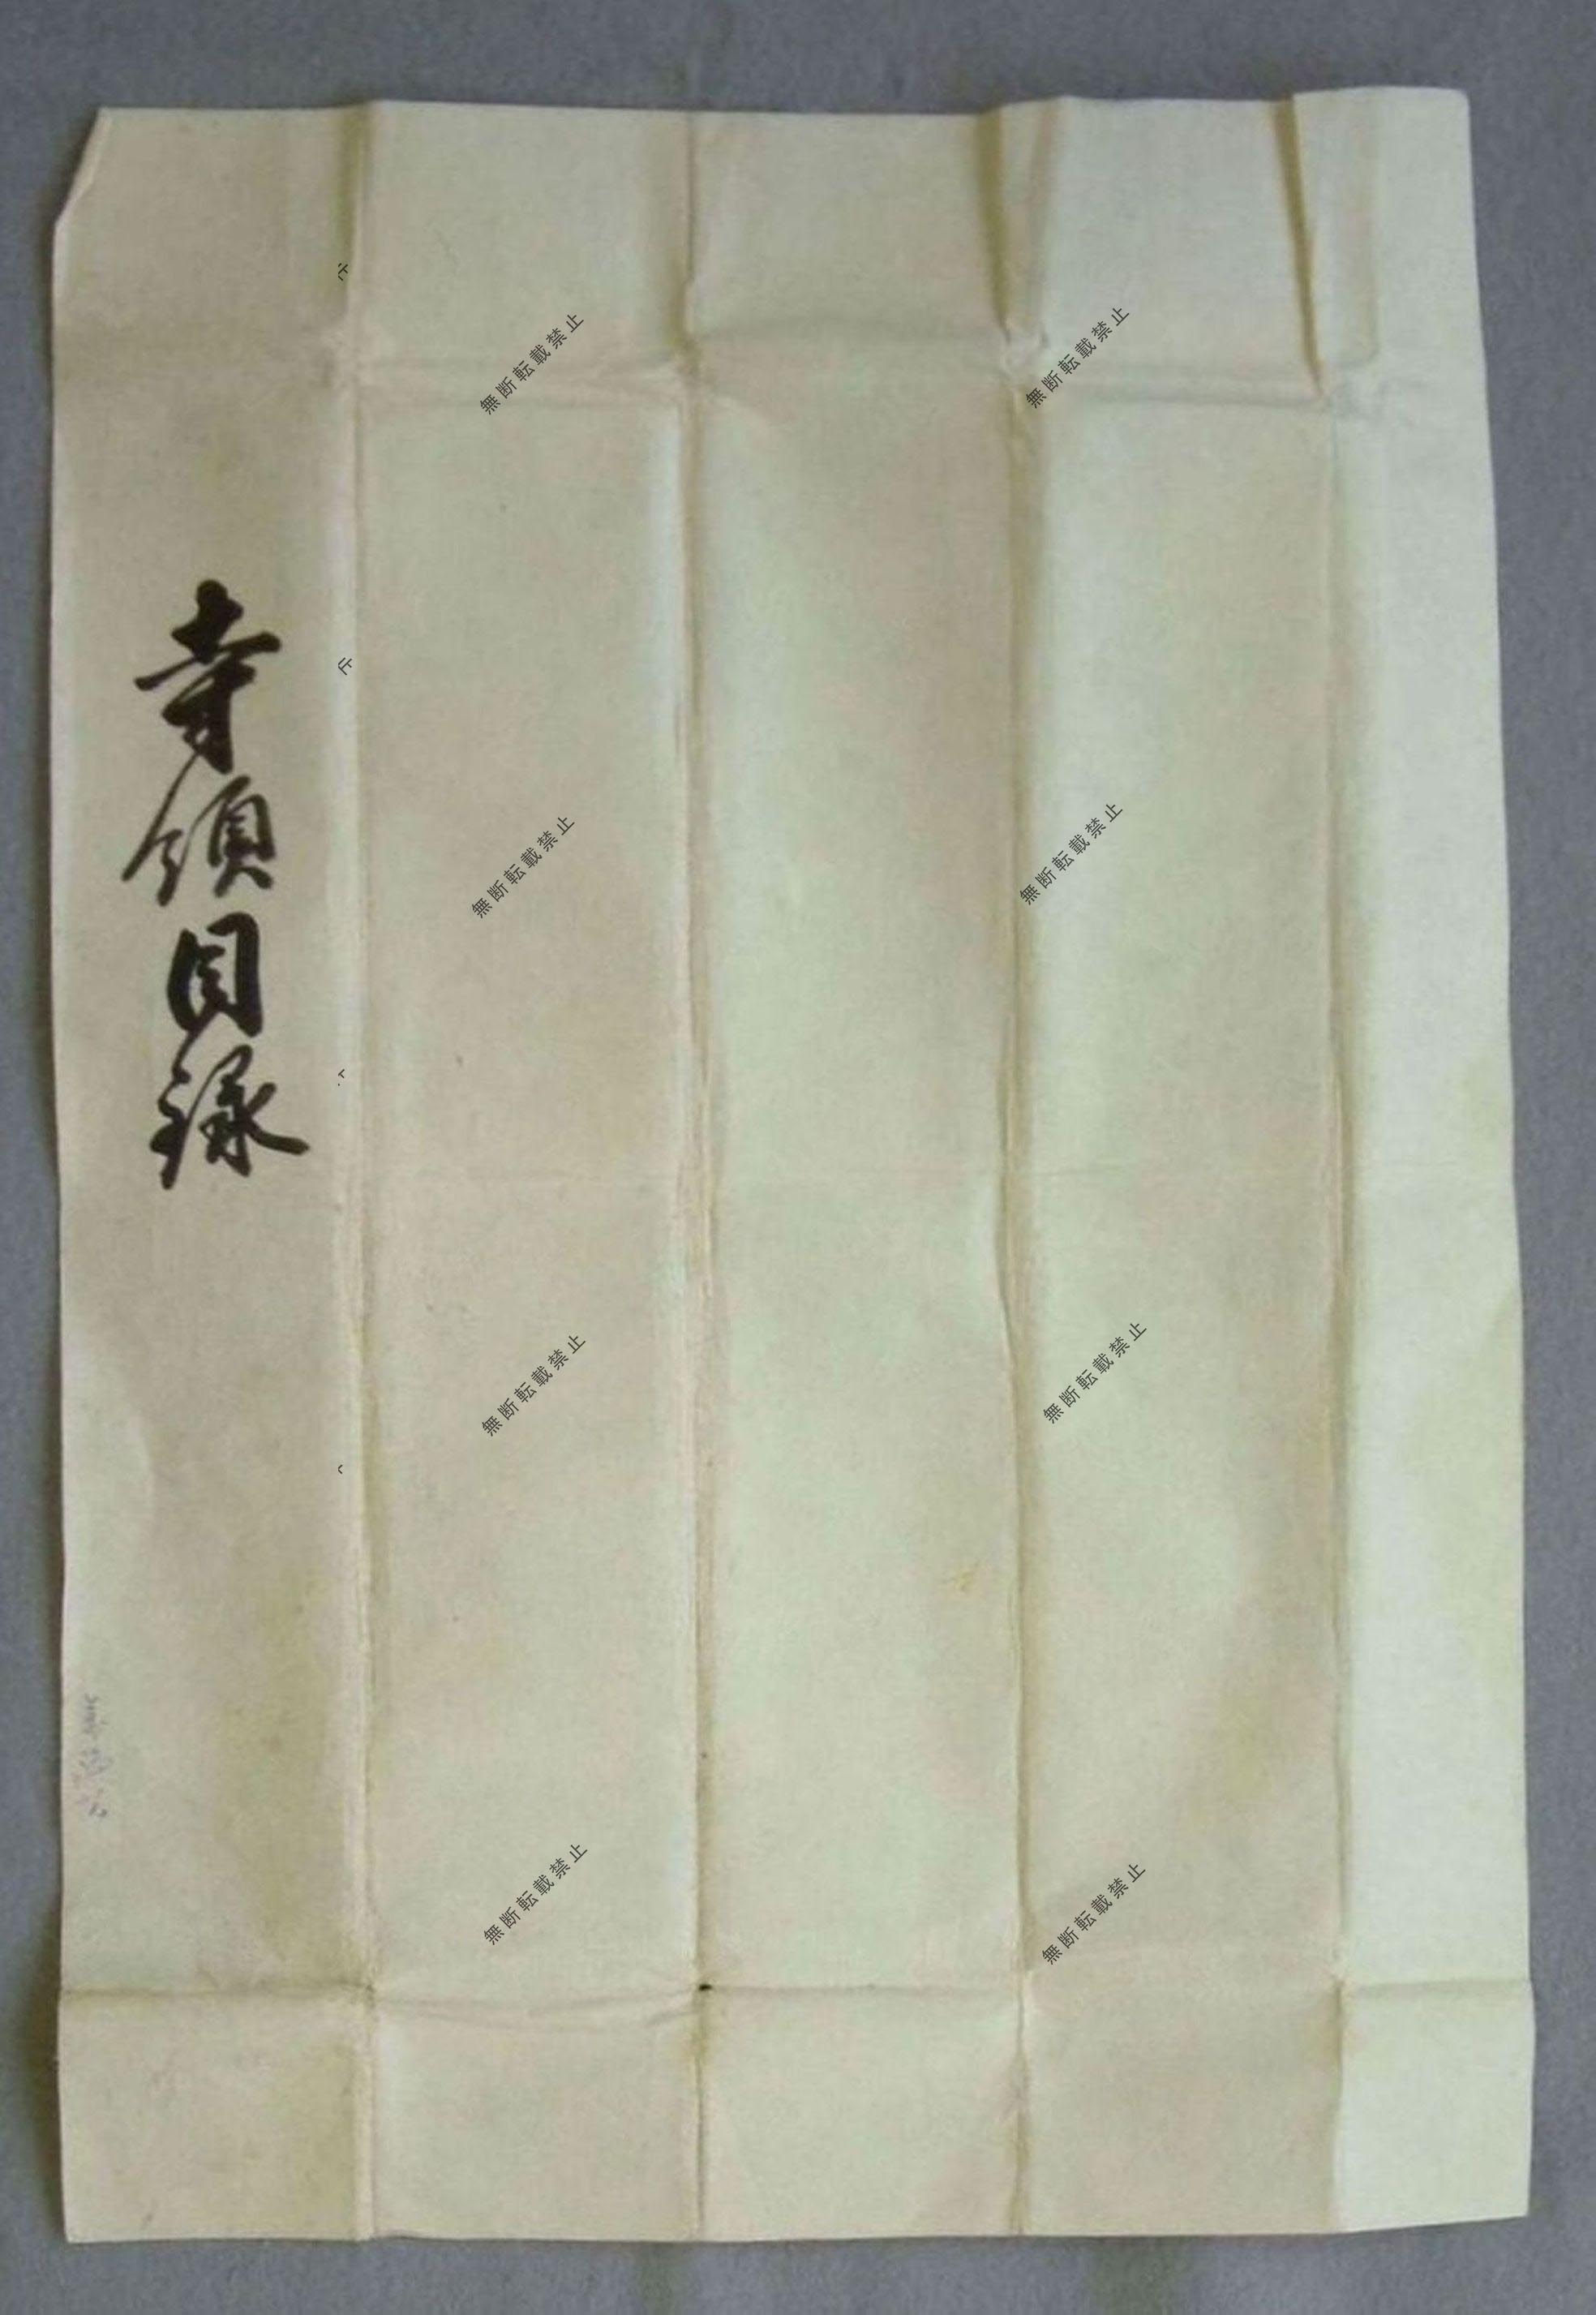 寺領目録
無断転載禁止
無断転載禁止
無断転載禁止
無断転載禁止
無断転載禁止
無断転載禁止
無断転載禁止
無断転載禁止